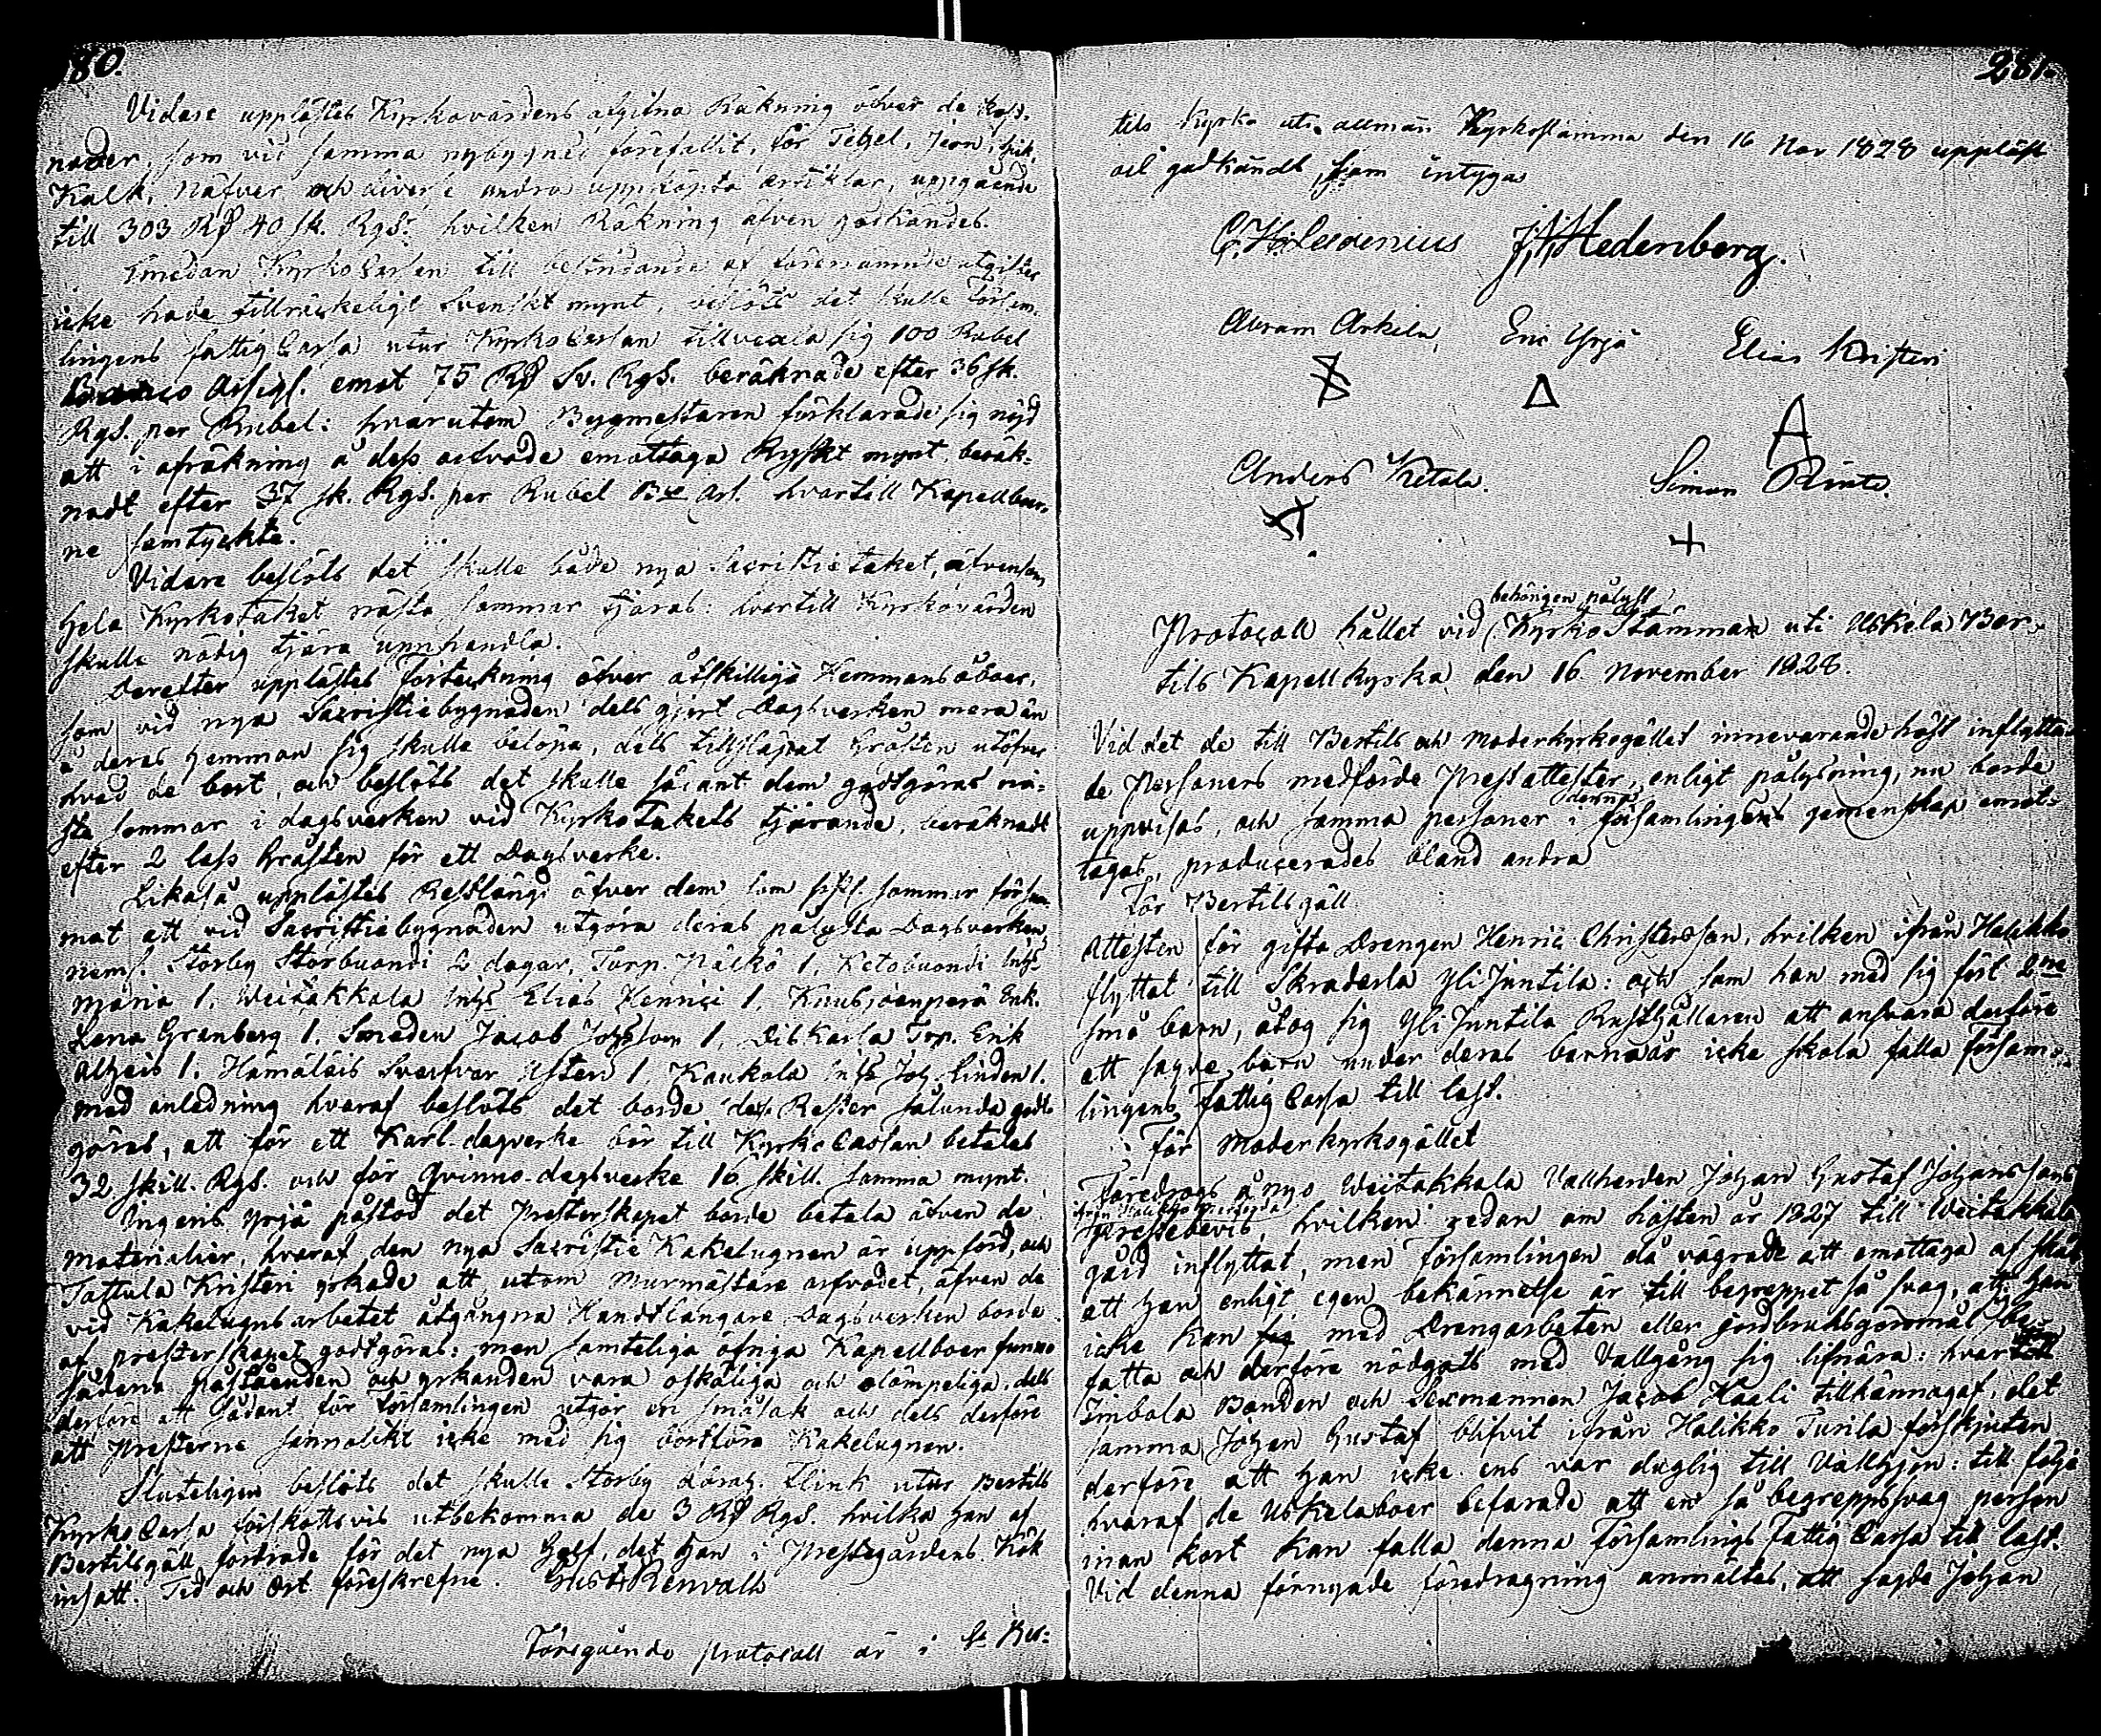 80.
Vidare upplästes Kyrkovärdens afgifna Räkning öfver de kost-
nader, som vid samma nybygnad förefallit, för Tegel, Jern, spik,
Kalk, Näfver och diverse andra uppköpta artiklar, uppgående
till 303 Rd 40 sk. Rgs. hvilken Räkning äfven godkändes.
Emedan KyrkoCassan till bestridande af förenämnde utgifter
icke hade tillräckeligt Svenskt mynt, beslöts det skulle Försam-
lingens fattigCassa utur KyrkoCassan tillvexla sig 100 Rubel
Banco Assigs. emot 75 Rd Sv. Rgs. beräknade efter 36 sk.
Rgs. per Rubel: hvarutom Byggmestaren förklarade sig nöjd
att i afräkning å dess arfvode emottaga Ryskt mynt, beräk-
nadt efter 37 sk. Rgs. per Rubel Bco Ass. hvartill Kapellboer-
ne samtyckte.
Vidare beslöts det skulle både nya Sacristietaket, äfvensom
hela Kyrkotaket nästa sommar tjäras: hvartill Kyrkovärden
skulle nödig tjära upphandla.
Derefter upplästes förteckning öfver åtskillige Hemmansåboer,
som vid nya Sacristiebygnaden dels gjort Dagsverken mera än
å deras hemman sig skulle belöpa, dels tillsläpat Gråsten utöfver
hvad de bort, och beslöts det skulle sådant dem godtgöras nä-
sta sommar i dagsverken vid KyrkoTakets tjärande, beräknadt
efter 2 lass Gråsten för ett Dagsverke.
Likaså upplästes Restlängd öfver dem som sistl. sommar försum-
mat att vid Sacristiebygnaden utgöra deras pålysta Dagsverken,
neml. Storby Storbuondi 2 dagar, Torp. Päckö 1, Ketobuondi Inhs
Maria 1, Weitakkala Inhs Elias Henrici 1, Enk.
Lena Granberg 1, Smeden Jacob Johsson 1, Torp. Erik
1, Hämäläis Svarfvar 1, Kaukola Inhs Joh. Linden 1.
med anledning hvaraf beslöts det borde dess Rester sålunda godt-
göras, att för ett Karl-dagsverke bör till KyrkoCassan betalas
32 skill. Rgs. och för Qvinno-dagsverke 16 skill. samma mynt.
Yrjä påstod det Presterskapet borde betala äfven de
materialier, hvaraf den nya Sacristie Kakelugnen är uppförd, och
Tattula Kristeri yrkade att utom Murmästare arfvodet, äfven de
vid Kakelugnsarbetet åtgångna Handtlangare Dagsverken borde
af presterskapet godtgöras: men samteliga öfriga Kapellboer funno
sådana påståenden och yrkanden vara oskäliga och olämpeliga, dels
derföre att sådant för Församlingen utgör en småsak och dels derföre
att Presterne sannolikt icke med sig bortföra Kakelugnen.
Sluteligen beslöts det skulle Storby Flink utur Bertils
KyrkoCassa förskottsvis utbekomma de 3 Rd Rgs. hvilka han af
Bertilsgäll fordrade för det nya Golf, det han i Prestgårdens Kök
insatt. Tid och Ort föreskrefne. Gust. Renvall
Föregående protocoll är i St Ber-
281.
tils Kyrka uti allmän Kyrkostämma den 16 Nov 1828 uppläst
och godkändt som intygas
C. H. J. Hedenberg.
Abram Arkila, Eric Yrjä Elias Kristeri
Anders Ketala. Simon Rinta.
behörigen pålyst
Protocoll hållet vid KyrkoStämman uti Uskela Ber-
tils Kapell Kyrka den 16 November 1828.
Vid det de till Bertils och Moderkyrkogället innevarande höst inflytta-
de Personers medförde Prestattester, enligt pålysning, nu borde
denne
uppvisas, och samma personer i församlingens gemenskap emot-
tagas, producerades bland andra
För Bertilsgäll
Attesten för gifta Drengen Henric Christersson, hvilken ifrån Halikko
flyttat till Skraderla YliJuntila: och som han med sig fört 2ne
små barn, åtog sig YliJuntila Rusthållaren att ansvara derföre
att sagde barn under deras barnaår icke skola falla församl-
lingens FattigCassa till last.
för Moderkyrkogället
Föredrogs å nyo Weitakkala Vallherden Johan Gustaf Johanssons
ifrån Halikko
Prestebevis, hvilken redan om hösten år 1827 till Weitakkala
gård inflyttat, men Församlingen då vägrade att emottaga af skäl
att han enligt egen bekännelse är till begreppet så svag, att han
icke kan sig med Drengarbeten eller jordbruksgöromål be-
fatta och derföre nödgats med Vallgång sig lifnära: hvartill
Imbola Bonden och Sexmannen Jacob Kaali tillkännagaf, det
samma Johan Gustaf blifvit ifrån Halikko Turila förskjuten
derföre att han icke ens var duglig till Vallhjon: till följe
hvaraf de Uskelaboer befarade att en så begreppssvag person
inan kort kan falla denna Församlings FattigCassa till last.
Vid denna förnyade föredragning anmältes, att sagde Johan